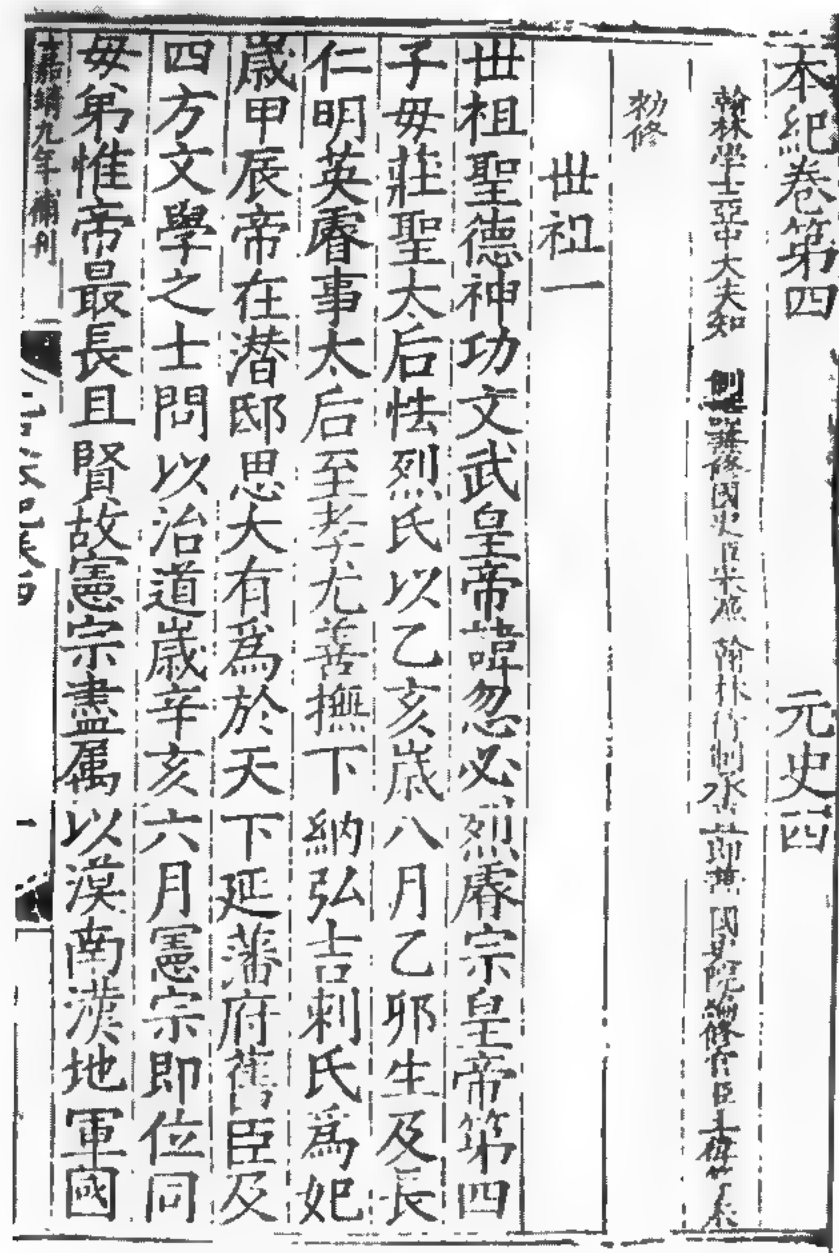 本紀卷第四 元史四
翰林學士亞中大夫知 制誥兼修國史臣宋濂 翰林待制承直郎兼 國史院編修官臣王禕等奉
勑修
世祖一
世祖聖德神功文武皇帝諱忽必烈睿宗皇帝第四
子毋莊聖太后怯烈氏以乙亥歳八月乙卯生及長
仁明英睿事太后至孝尤善撫下納弘吉剌氏爲妃
歳甲辰帝在潜邸思大有爲於天下延藩府舊臣及
四方文學之士問以治道歳辛亥六月憲宗即位同
毋弟惟帝最長且賢故憲宗盡属以漠南漢地軍國
嘉靖九年補刊